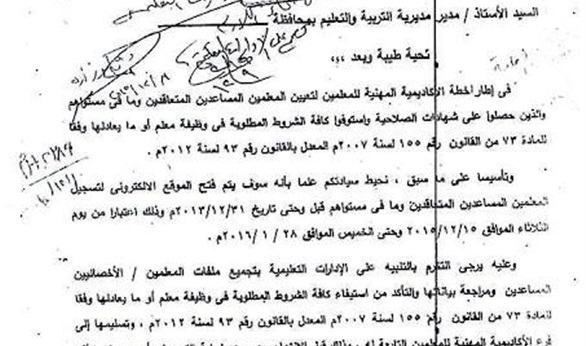 السيد الأستاذ / مدير مديرية التربية والتعليم بمحافظة
تحية طيبة وبعد ،،،
فى إطار خطة الأكاديمية المهنية للمعلمين لتعيين المعلمين المساعدين المتعاقدين وما فى مستواهم
والذين حصلوا على شهادات الصلاحية واستوفوا كافة الشروط المطلوبة فى وظيفة معلم أو ما يعادلها وفقا
للمادة ٧٣ من القانون رقم ١٥٥ لسنة ٢٠٠٧م المعدل بالقانون رقم ٩٣ لسنة ٢٠١٢م .
وتأسيسا على ما سبق ، نحيط سيادتكم علما بأنه سوف يتم فتح الموقع الالكترونى لتسجيل
المعلمين المساعدين المتعاقدين وما فى مستواهم قبل وحتى تاريخ ٢٠١٣/١٢/٣١م وذلك اعتبارا من يوم
الثلاثاء الموافق ٢٠١٥/١٢/١٥ وحتى الخميس الموافق ٢٨ / ١ / ٢٠١٦م .
وعليه يرجى التكرم بالتنبيه على الإدارات التعليمية بتجميع ملفات المعلمين / الأخصائيين
المساعدين ومراجعة بياناتها والتأكد من استيفاء كافة الشروط المطلوبة فى وظيفة معلم أو ما يعادلها وفقا
للمادة ٧٣ من القانون رقم ١٥٥ لسنة ٢٠٠٧م المعدل بالقانون رقم ٩٣ لسنة ٢٠١٢م ، وتسليمها إلى
فرع الأكاديمية المهنية للمعلمين التابعة له